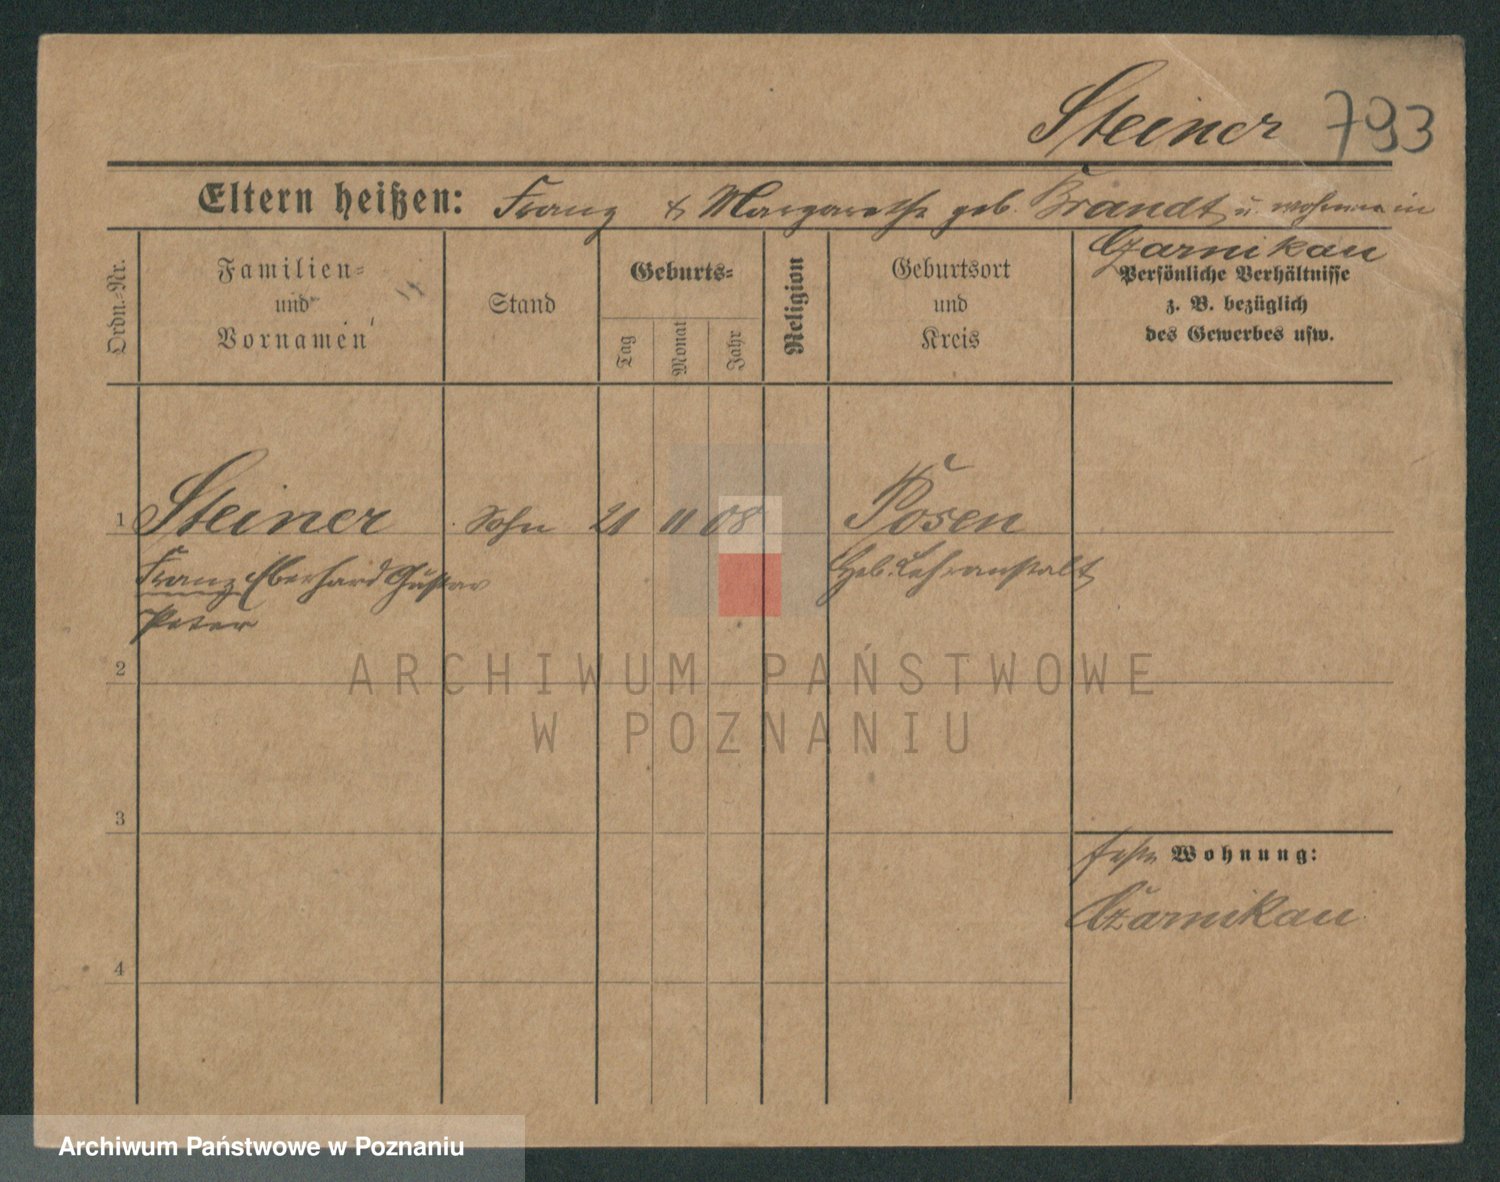 Steiner 793
Eltern heißen: Franz & Margarethe geb. Brandt u. wohnen in
Czarnikau
Ordn.-Nr.
Familien-
und
Vornamen
Stand
Geburts-
Tag
Monat
Jahr
Religion
Geburtsort
und
Kreis
Persönliche Verhältnisse
z. B. bezüglich
des Gewerbes usw.
1 Steiner Sohn 21 11 08 Posen
Franz Eberhard Gustav Heb. Lehranstalt
Peter
2
ARCHIWUM PAŃSTWOWE
W POZNANIU
3
feste Wohnung:
Czarnikau
4
Archiwum Państwowe w Poznaniu